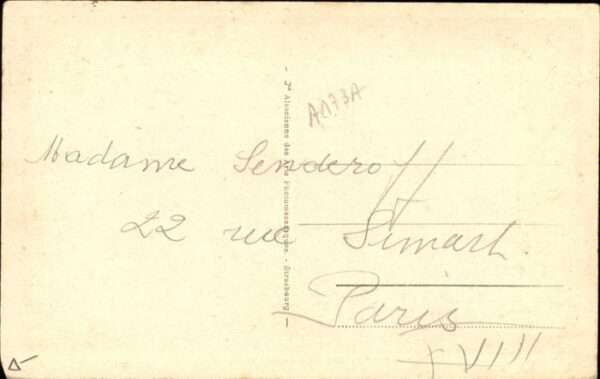 A1173A
Madame Senderoff
22 rue Simart.
Paris
XVIII
Alsacienne des Arts Photomécaniques. - Strasbourg